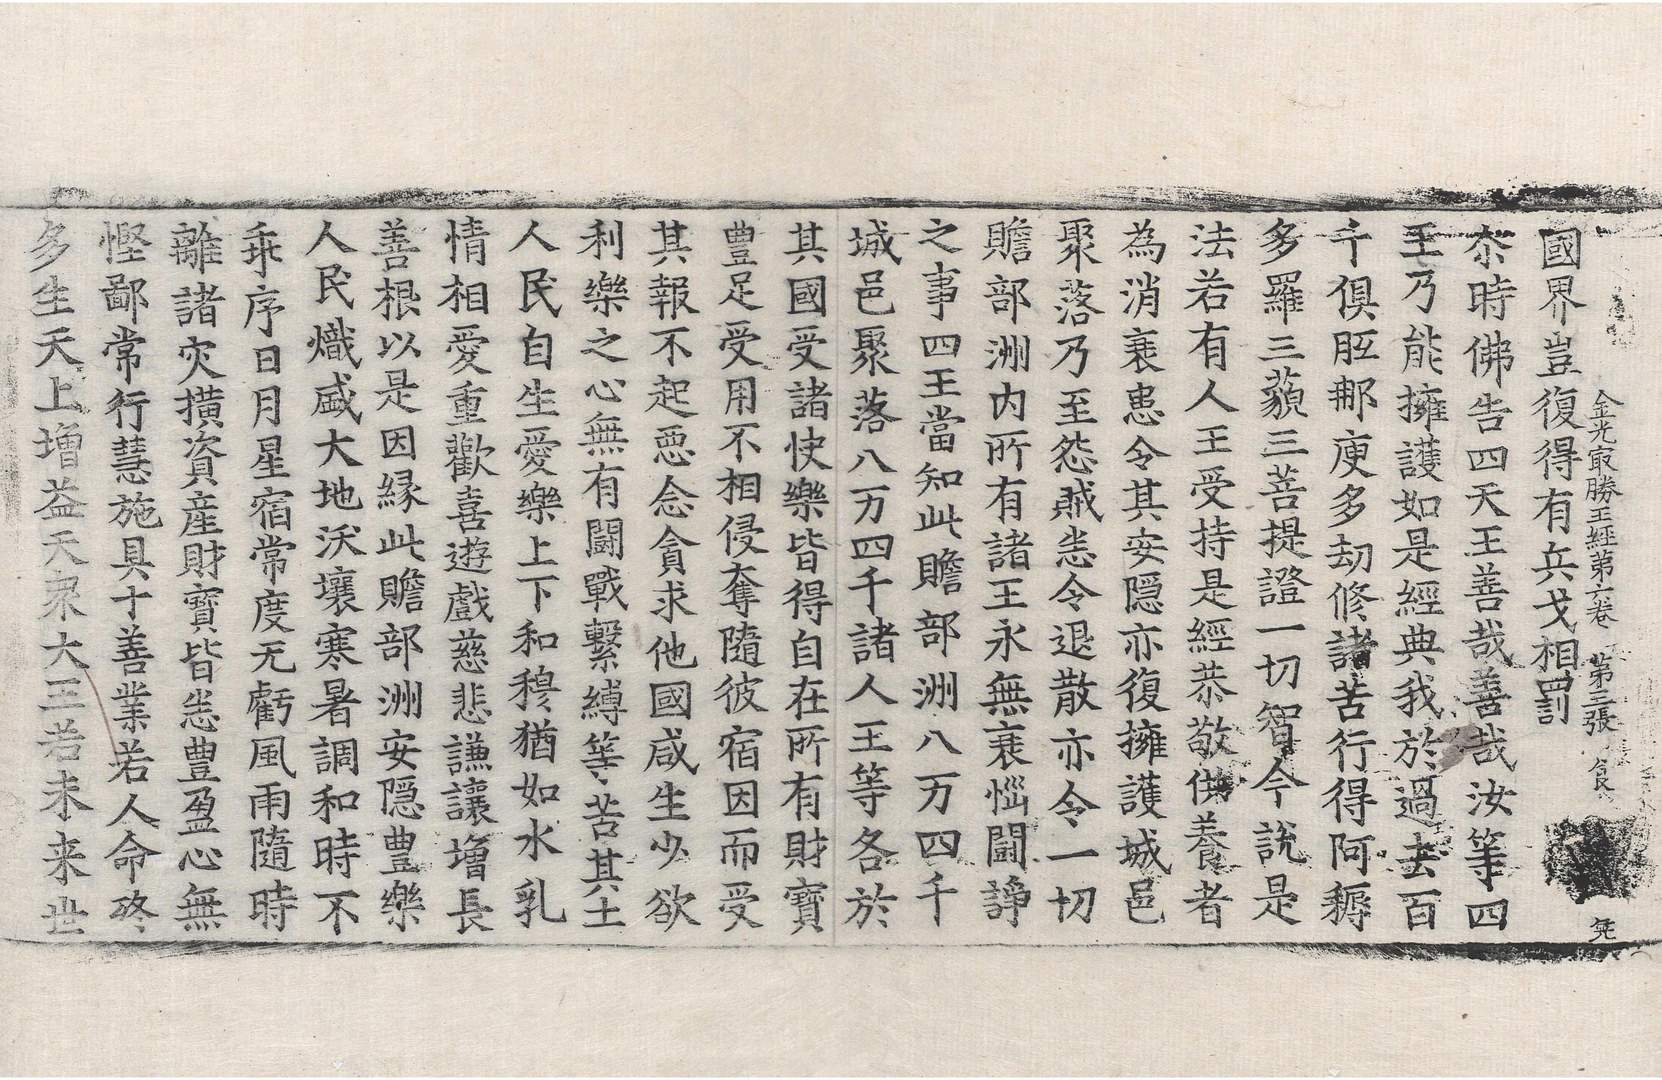 金光㝡勝王經第六卷 第三張 食
國界豈復得有兵戈相罰
尒時佛告四天王善哉善哉汝等四
王乃能擁護如是經典我於過去百
千俱胝那庾多劫修諸苦行得阿耨
多羅三藐三菩提證一切智今說是
法若有人王受持是經恭敬供養者
為消衰患令其安隱亦復擁護城邑
聚落乃至怨賊悉令退散亦令一切
贍部洲內所有諸王永無衰惱鬪諍
之事四王當知此贍部洲八万四千
城邑聚落八万四千諸人王等各於
其國受諸快樂皆得自在所有財寶
豊足受用不相侵奪隨彼宿因而受
其報不起惡念貪求他國咸生少欲
利樂之心無有鬪戰繫縛等苦其土
人民自生愛樂上下和穆猶如水乳
情相愛重歡喜遊戲慈悲謙讓增長
善根以是因緣此贍部洲安隱豊樂
人民熾盛大地沃壤寒暑調和時不
乖序日月星宿常度无虧風雨隨時
離諸灾撗資產財寶皆悉豊盈心無
慳鄙常行慧施具十善業若人命終
多生天上增益天衆大王若未来世